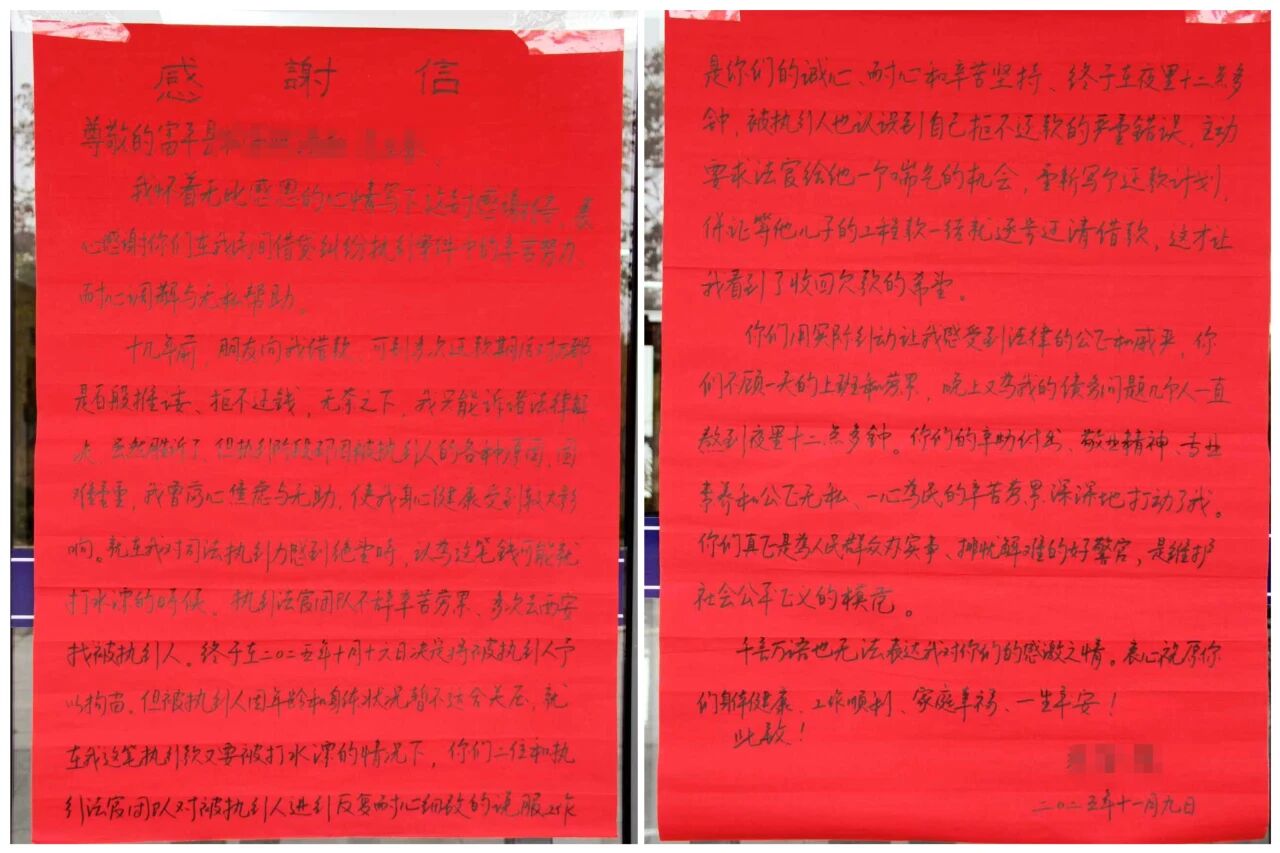 感謝信
尊敬的富平县
我怀着无比感恩的心情写下这封感谢信,衷
心感谢你们在我民间借贷纠纷执行案件中的辛苦努力、
耐心调解与无私帮助。
十几年前,朋友向我借款,可到多次还款期后对方都
是百般推诿、拒不还钱,无奈之下,我只能诉诸法律解
决,虽然胜诉了,但执行阶段却因被执行人的各种原因,困
难重重,我曾内心焦虑与无助,使我身心健康受到较大影
响。就在我对司法执行力感到绝望时,以为这笔钱可能就
打水漂的时候,执行法官团队不辞辛苦劳累、多次去西安
找被执行人。终于在二〇二五年十月十六日决定将被执行人予
以拘留。但被执行人因年龄和身体状况暂不适合关压,就
在我这笔执行款又要被打水漂的情况下,你们二位和执
行法官团队对被执行人进行反复耐心细致的说服工作
是你们的诚心、耐心和辛苦坚持、终于在夜里十二点多
钟,被执行人也认识到自己拒不还款的严重错误,主动
要求法官给他一个喘气的机会,重新写个还款计划,
併让等他儿子的工程款一结就逐步还清借款,这才让
我看到了收回欠款的希望。
你们用实际行动让我感受到法律的公正和威严,你
们不顾一天的上班和劳累,晚上又为我的债务问题几个人一直
熬到夜里十二点多钟。你们的辛勤付出、敬业精神、专业
素养和公正无私、一心为民的辛苦劳累深深地打动了我。
你们真正是为人民群众办实事、排忧解难的好警官,是维护
社会公平正义的模范。
千言万语也无法表达我对你们的感激之情。衷心祝愿你
们身体健康、工作顺利、家庭幸福、一生平安!
此致!
二〇二五年十一月九日